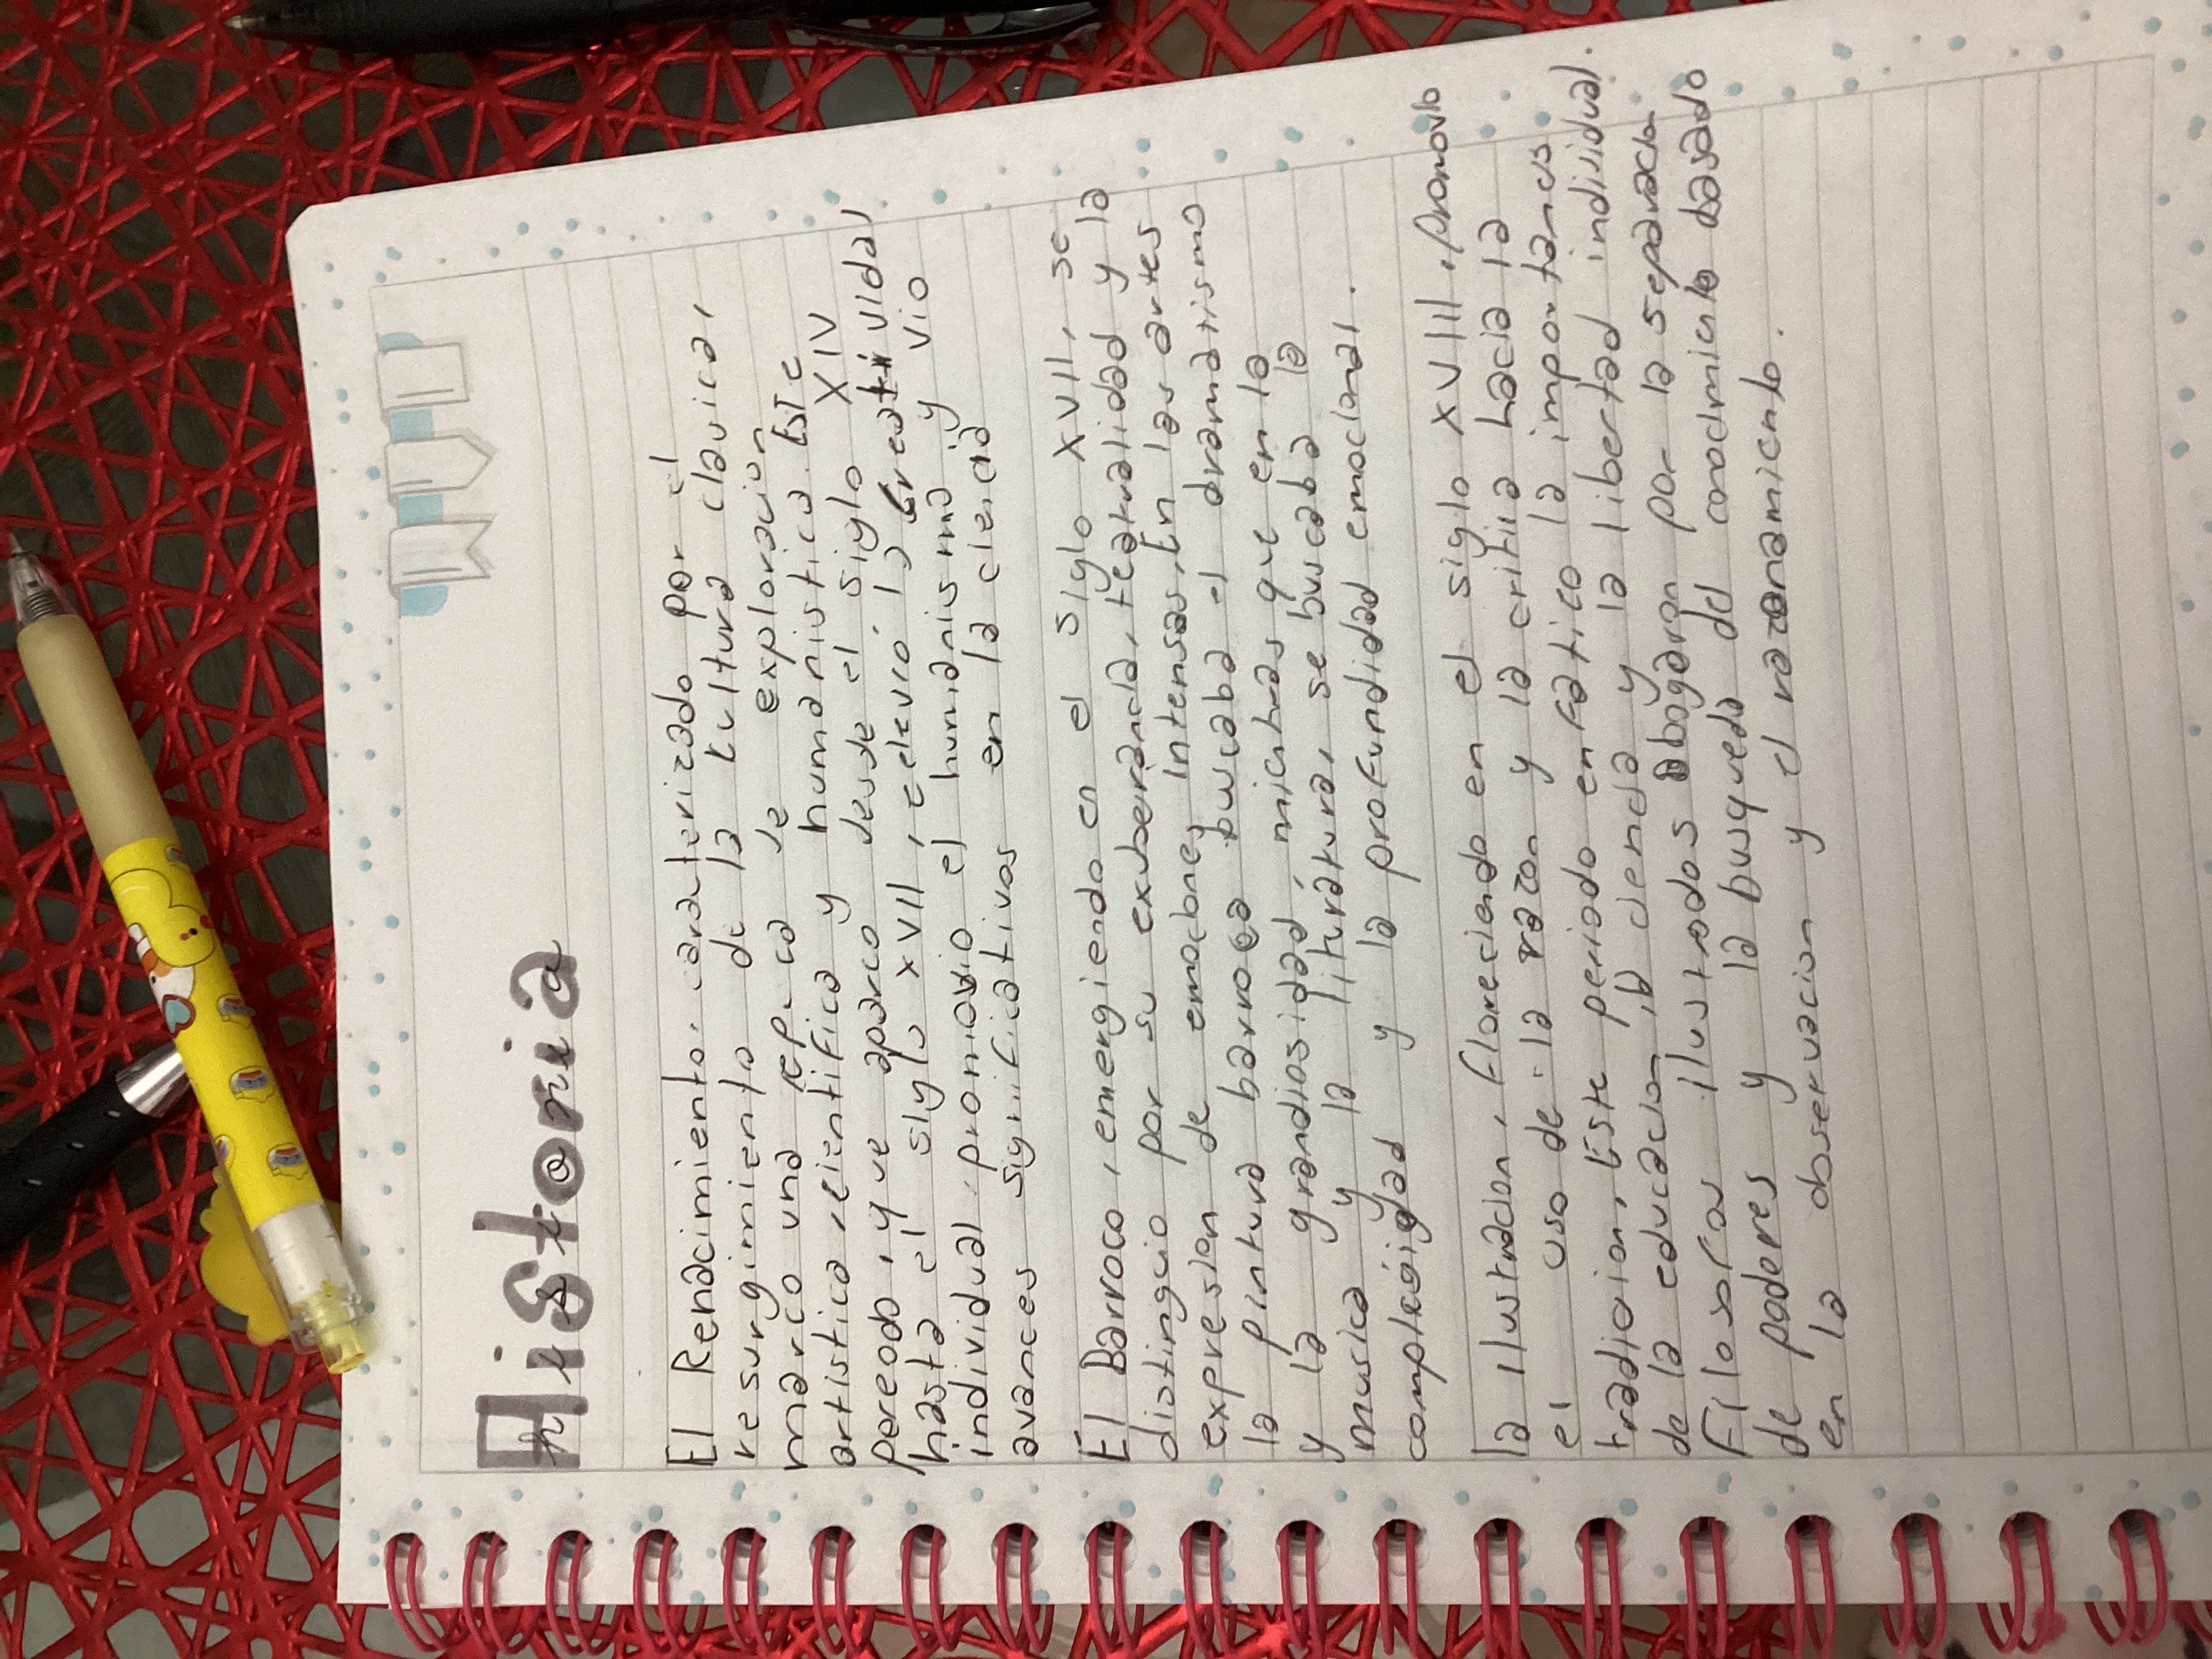 Historia
El Renacimiento, caracterizado por el
resurgimiento de la cultura clasica,
marco una epoca de exploración
artistica, cientifica y humanistica. Este
pereodo, que aparco desde el siglo XIV
hasta el siglo XVII, elevró la creatividad
individual, promovio el humanismo y vio
avances significativos en la ciencia
El Barroco, emergiendo en el siglo XVII, se
distinguio por su exuberancia, teatralidad y la
expresion de emociones intensas. En las artes
la pintura barroca buscaba el dramatismo
y la grandiosidad, mientras que en la
musica y la lituratura, se buscaba la
complegidad y la profundidad emocional.
la ilustracion, floreciendo en el siglo XVIII, promovio
el uso de la razon y la critica hacia la
tradicion, Este periodo enfatico la importancia
de la educacion, la ciencia y la libertad individual.
Filosofos ilustrados abogaron por la separacion
de poderes y la busqueda del conocimiento basado
en la observacion y el razonamiento.